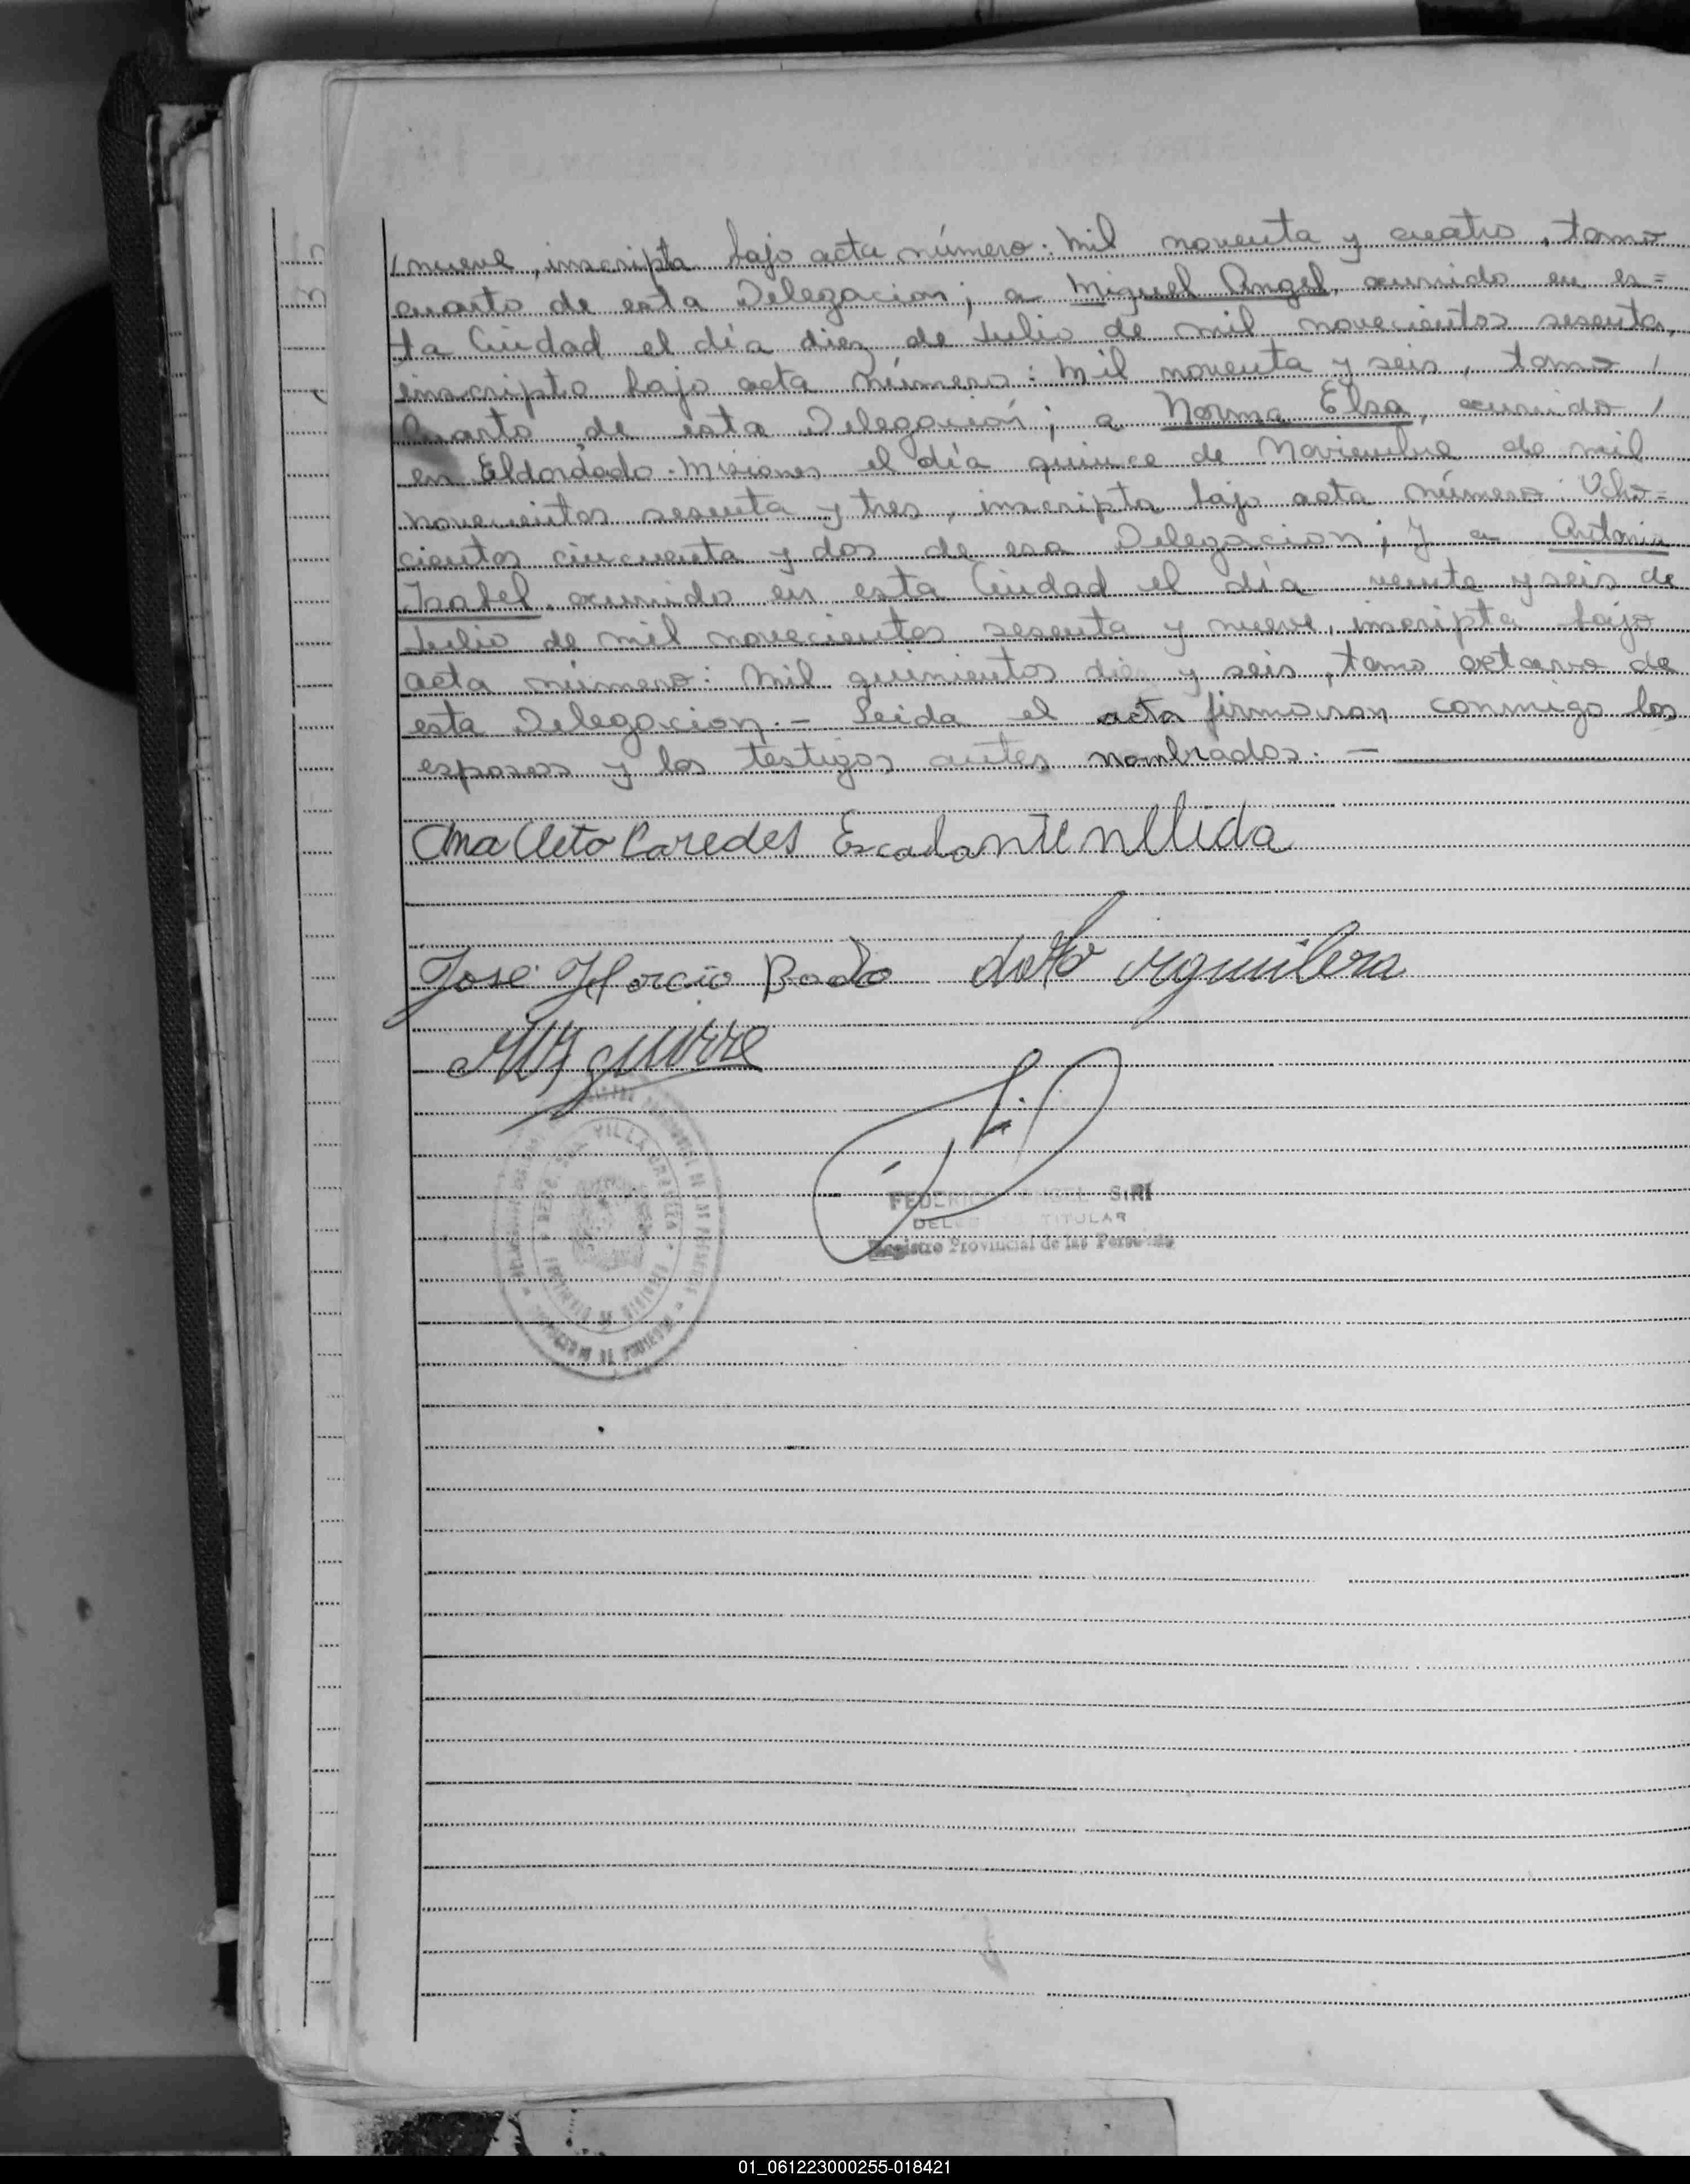 /nueve, inscripta bajo acta número: Mil noventa y cuatro, tomo
cuarto de esta Delegacion; a Miguel Angel, ocurrido en es=
ta Ciudad el día diez de Julio de mil novecientos sesenta,
inscripto bajo acta número: Mil noventa y seis, tomo /
Cuarto de esta Delegación; a Norma Elsa, ocurrido /
en Eldordado-Misiones el día quince de Noviembre de mil
novecientos sesenta y tres, inscripta bajo acta número: Ocho=
cientos cincuenta y dos de esa Delegacion; y a Antonia
Isabel, ocurrido en esta Ciudad el día veinte y seis de
Julio de mil novecientos sesenta y nueve, inscripta bajo
acta número: Mil quinientos diez y seis, tomo octavo de
esta Delegacion.- Leida el acta firmaron conmigo los
esposos y los testigos antes nombrados. —
Ana Cleto Paredes Escalante nélida
José Horacio Bado
FEDERICO ANGEL SIRI
TITULAR
Registro Provincial de las Personas
VILLA
DE LAS PERSONAS
01_061223000255-018421